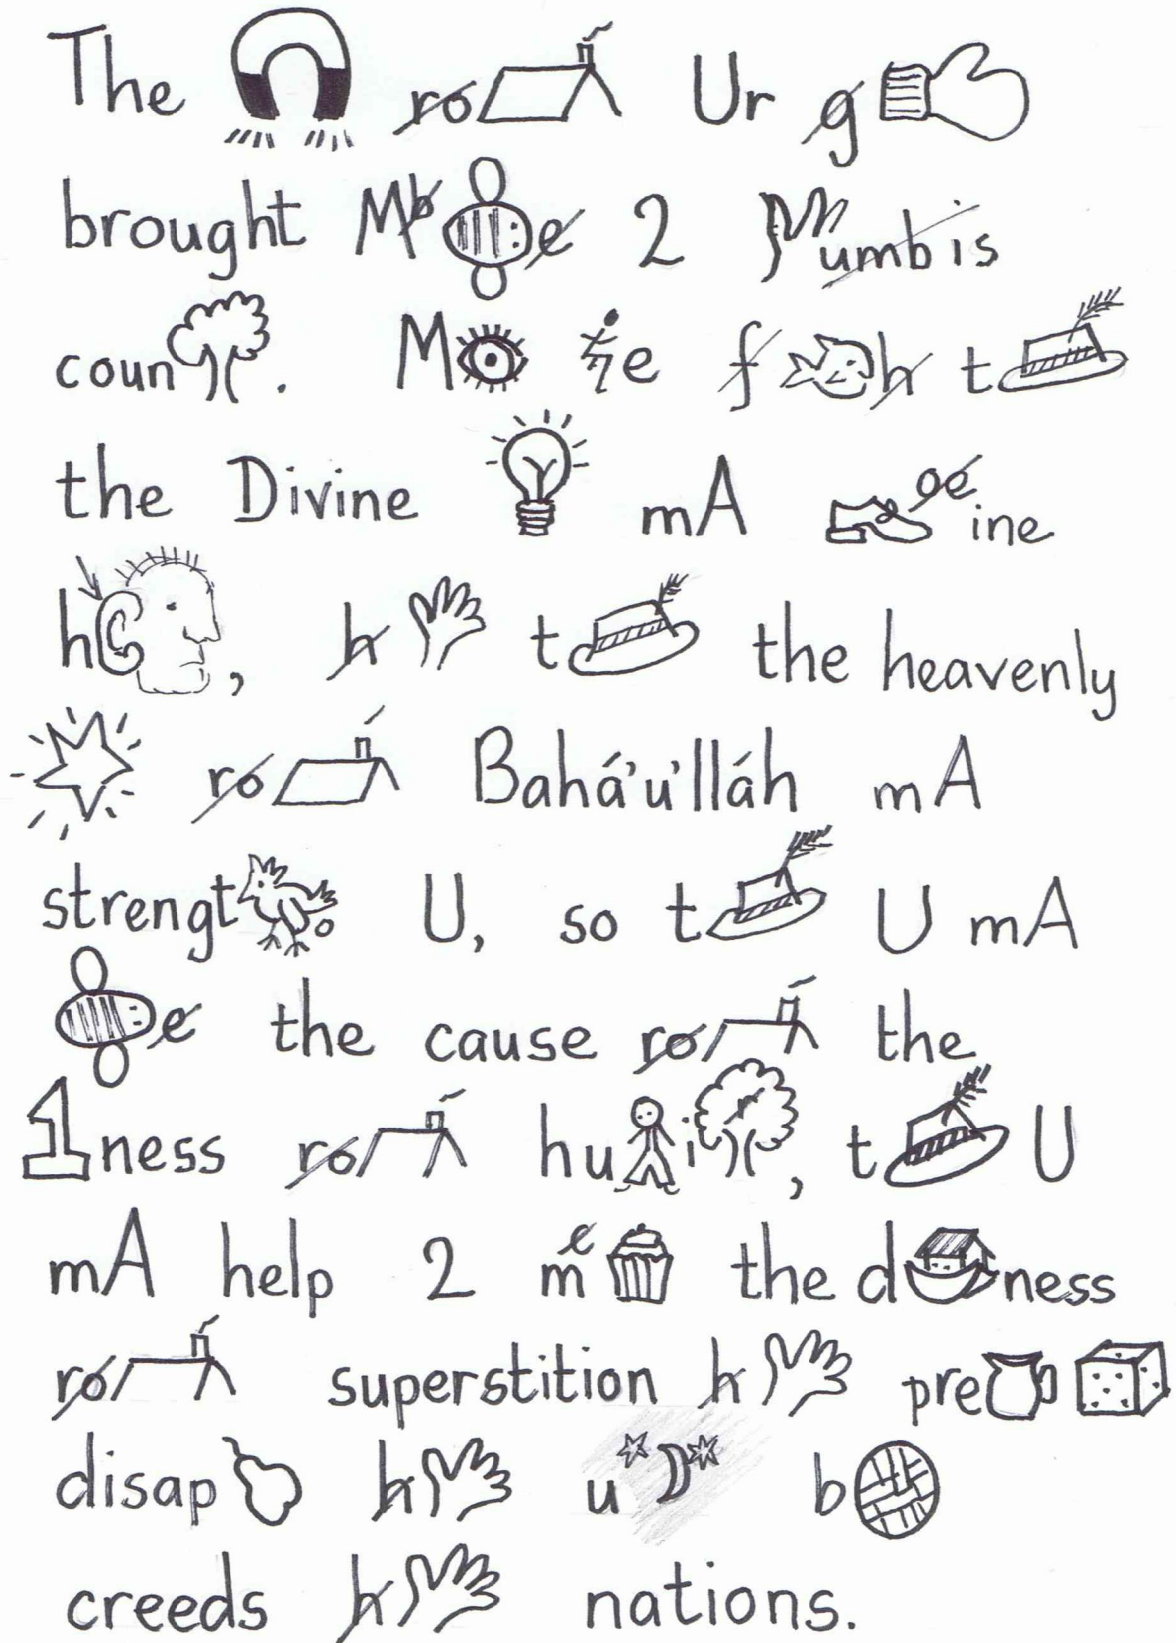 The ro Ur g
brought Mb e 2 umb is
coun . M e f h t
the Divine mA oe ine
h , h t the heavenly
ro Bahá'u'lláh mA
strengt U, so t U mA
e the cause ro the
1ness ro hu i , t U
mA help 2 me the d ness
ro superstition h pre
disap h u b
creeds h nations.